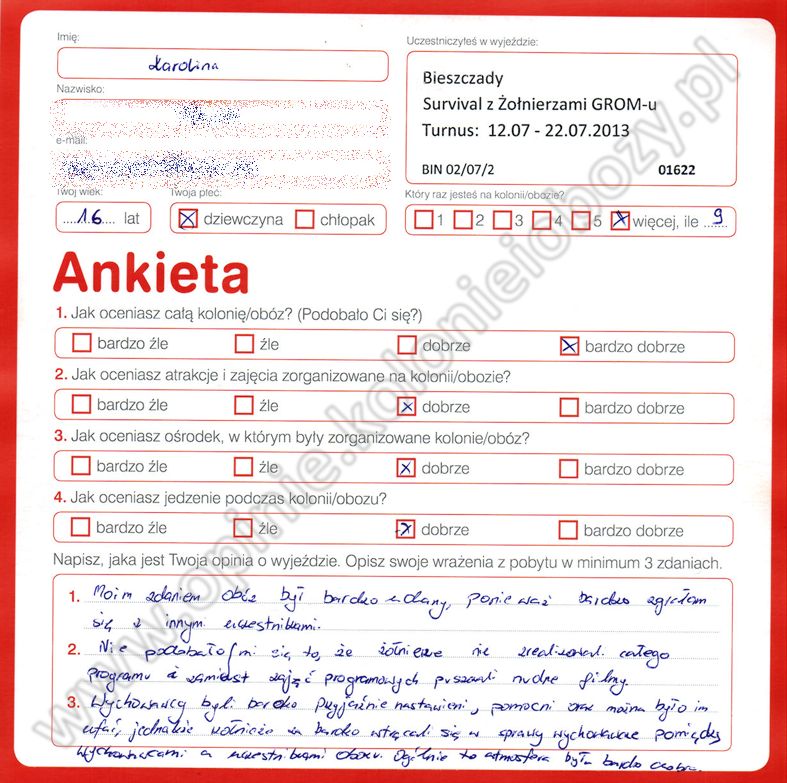 Imię:
Karolina
Uczestniczyłeś w wyjeździe:
Bieszczady
Survival z Żołnierzami GROM-u
Turnus: 12.07 - 22.07.2013
BIN 02/07/2 01622
Nazwisko:
e-mail:
Twój wiek: Twoja płeć: Który raz jesteś na kolonii/obozie?
....16.... lat dziewczyna chłopak 1 2 3 4 5 więcej, ile ..9..
Ankieta
1. Jak oceniasz całą kolonię/obóz? (Podobało Ci się?)
bardzo źle źle dobrze bardzo dobrze
2. Jak oceniasz atrakcje i zajęcia zorganizowane na kolonii/obozie?
bardzo źle źle dobrze bardzo dobrze
3. Jak oceniasz ośrodek, w którym były zorganizowane kolonie/obóz?
bardzo źle źle dobrze bardzo dobrze
4. Jak oceniasz jedzenie podczas kolonii/obozu?
bardzo źle źle dobrze bardzo dobrze
Napisz, jaka jest Twoja opinia o wyjeździe. Opisz swoje wrażenia z pobytu w minimum 3 zdaniach.
1. Moim zdaniem obóz był bardzo udany, ponieważ bardzo zgrałam
się z innymi uczestnikami.
2. Nie podobało mi się to, że żołnierze nie zrealizowali całego
programu a zamiast zajęć programowych puszczali nudne filmy.
3. Wychowawcy byli bardzo przyjaźnie nastawieni, pomocni oraz można było im
ufać, jednakże żołnierze za bardzo wtrącali się w sprawy wychowawcze pomiędzy
wychowawcami a uczestnikami obozu. Ogólnie to atmosfera była bardzo dobra.
www.opinie.kolonieiobozy.pl